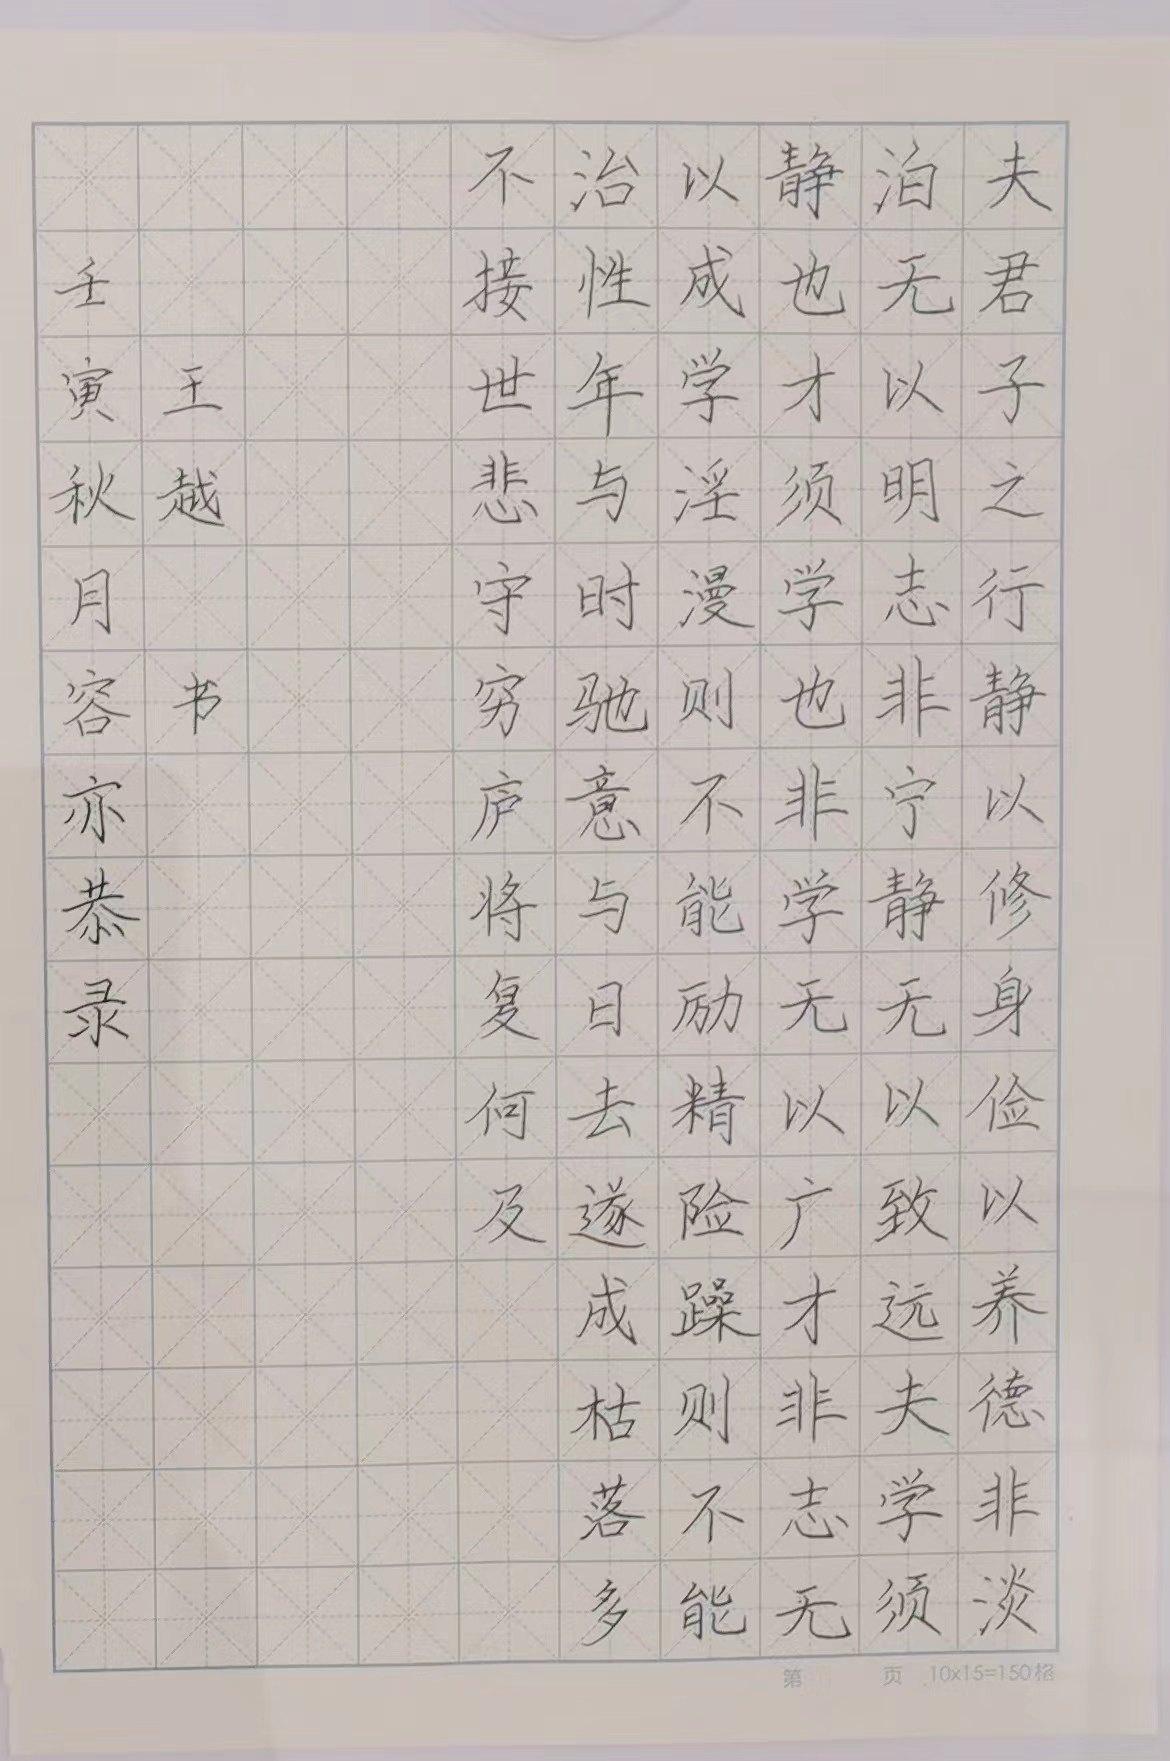 夫君子之行静以修身俭以养德非淡
泊无以明志非宁静无以致远夫学须
静也才须学也非学无以广才非志无
以成学淫漫则不能励精险躁则不能
治性年与时驰意与日去遂成枯落多
不接世悲守穷庐将复何及
王越 书
壬寅秋月容亦恭录
第 页 10x15=150格